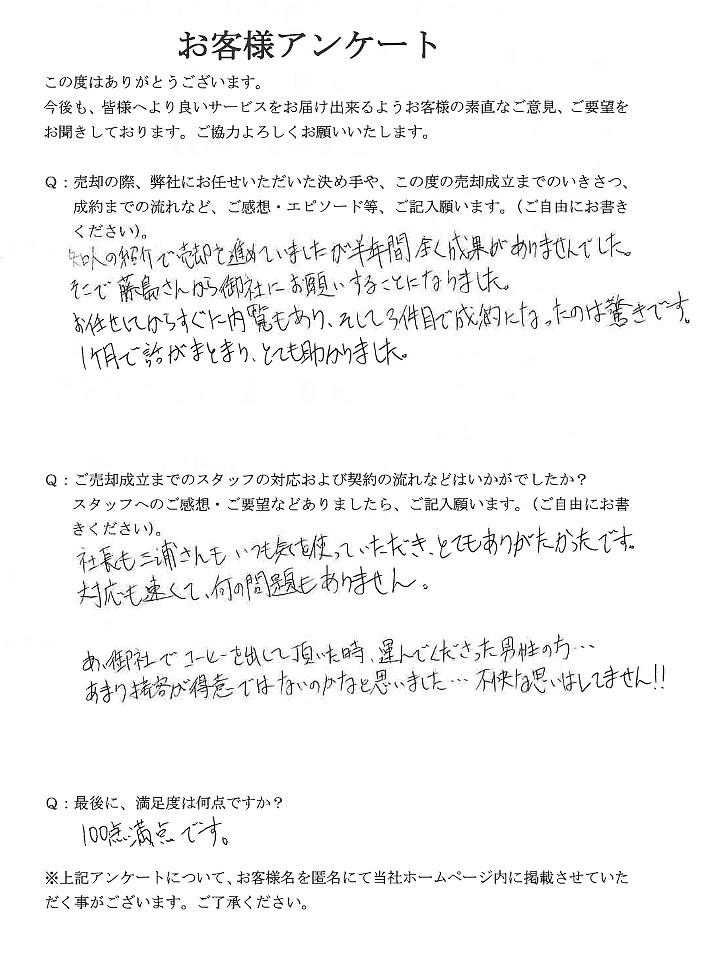 お客様アンケート
この度はありがとうございます。
今後も、皆様へより良いサービスをお届け出来るようお客様の素直なご意見、ご要望を
お聞きしております。ご協力よろしくお願いいたします。
Q：売却の際、弊社にお任せいただいた決め手や、この度の売却成立までのいきさつ、
成約までの流れなど、ご感想・エピソード等、ご記入願います。（ご自由にお書き
ください）。
知人の紹介で売却を進めていましたが半年間全く成果がありませんでした。
そこで藤島さんから御社にお願いすることになりました。
お任せしてからすぐに内覧もあり、そして3件目で成約になったのは驚きです。
1ヶ月で話がまとまり、とても助かりました。
Q：ご売却成立までのスタッフの対応および契約の流れなどはいかがでしたか？
スタッフへのご感想・ご要望などありましたら、ご記入願います。（ご自由にお書
きください）。
社長も三浦さんもいつも気を使っていただき、とてもありがたかったです。
対応も速くて、何の問題もありません。
あ、御社でコーヒーを出して頂いた時、運んでくださった男性の方…
あまり接客が得意ではないのかなと思いました… 不快な思いはしてません!!
Q：最後に、満足度は何点ですか？
100点満点です。
※上記アンケートについて、お客様名を匿名にて当社ホームページ内に掲載させていた
だく事がございます。ご了承ください。